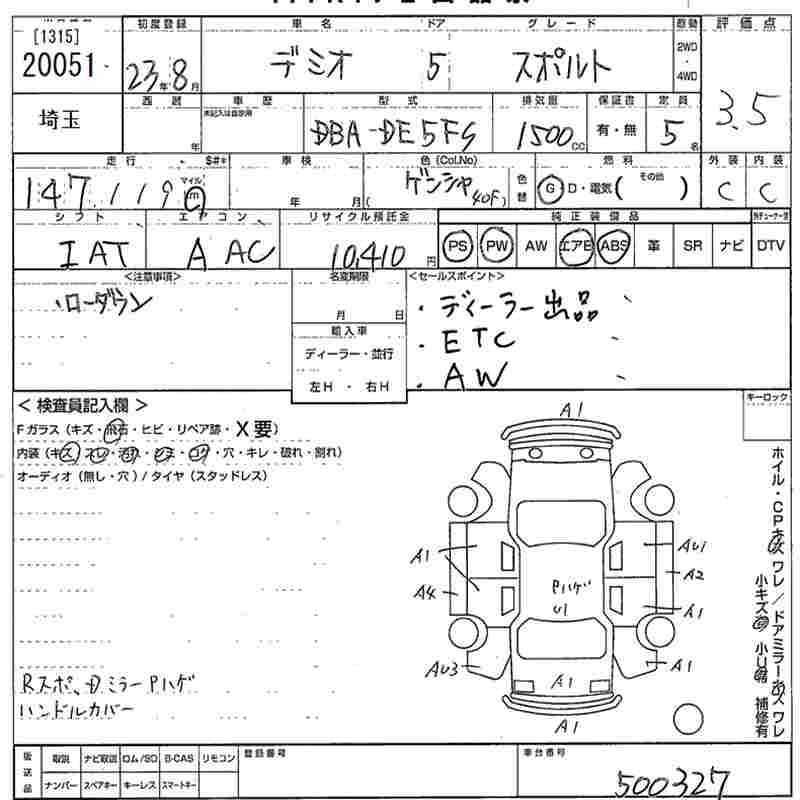 [1315]
20051
初度登録
23年8月
車名
デミオ
ドア
5
グレード
スポルト
駆動
2WD
・
4WD
評価点
3.5
埼玉
西暦
年
車歴
未記入は自家用
型式
DBA-DE5FS
排気量
1500cc
保証書
有・無
定員
5名
走行
$#*
147,119
マイル
km
車検
年 月
色(Col.No)
ゲンシャ
40F)
色替
燃料
G D・電気( その他 )
外装
C
内装
C
シフト
IAT
エアコン
AAC
リサイクル預託金
10,410円
純正装備品
PS PW AW エアB ABS 革 SR ナビ DTV
<注意事項>
・ローダウン
名変期限
月 日
輸入車
ディーラー・並行
左H ・ 右H
<セールスポイント>
・ディーラー出品
・ETC
・AW
キーロック
<検査員記入欄>
Fガラス(キズ・飛石・ヒビ・リペア跡・X要)
内装(キズ・スレ・汚れ・シミ・コゲ・穴・キレ・破れ・割れ)
オーディオ(無し・穴)/タイヤ(スタッドレス)
A1
A1
A4
AU3
Pハゲ
U1
AU1
A2
A1
A1
A1
A1
ホイル・CPキズ ワレ/ドアミラーキズ ワレ
小キズ有 小U有 補修有
Rスポ、Dミラー Pハゲ
ハンドルカバー
後送品
取説 ナビ取説 ロム/SD B-CAS リモコン
ナンバー スペアキー キーレス スマートキー
登録番号
車台番号
500327